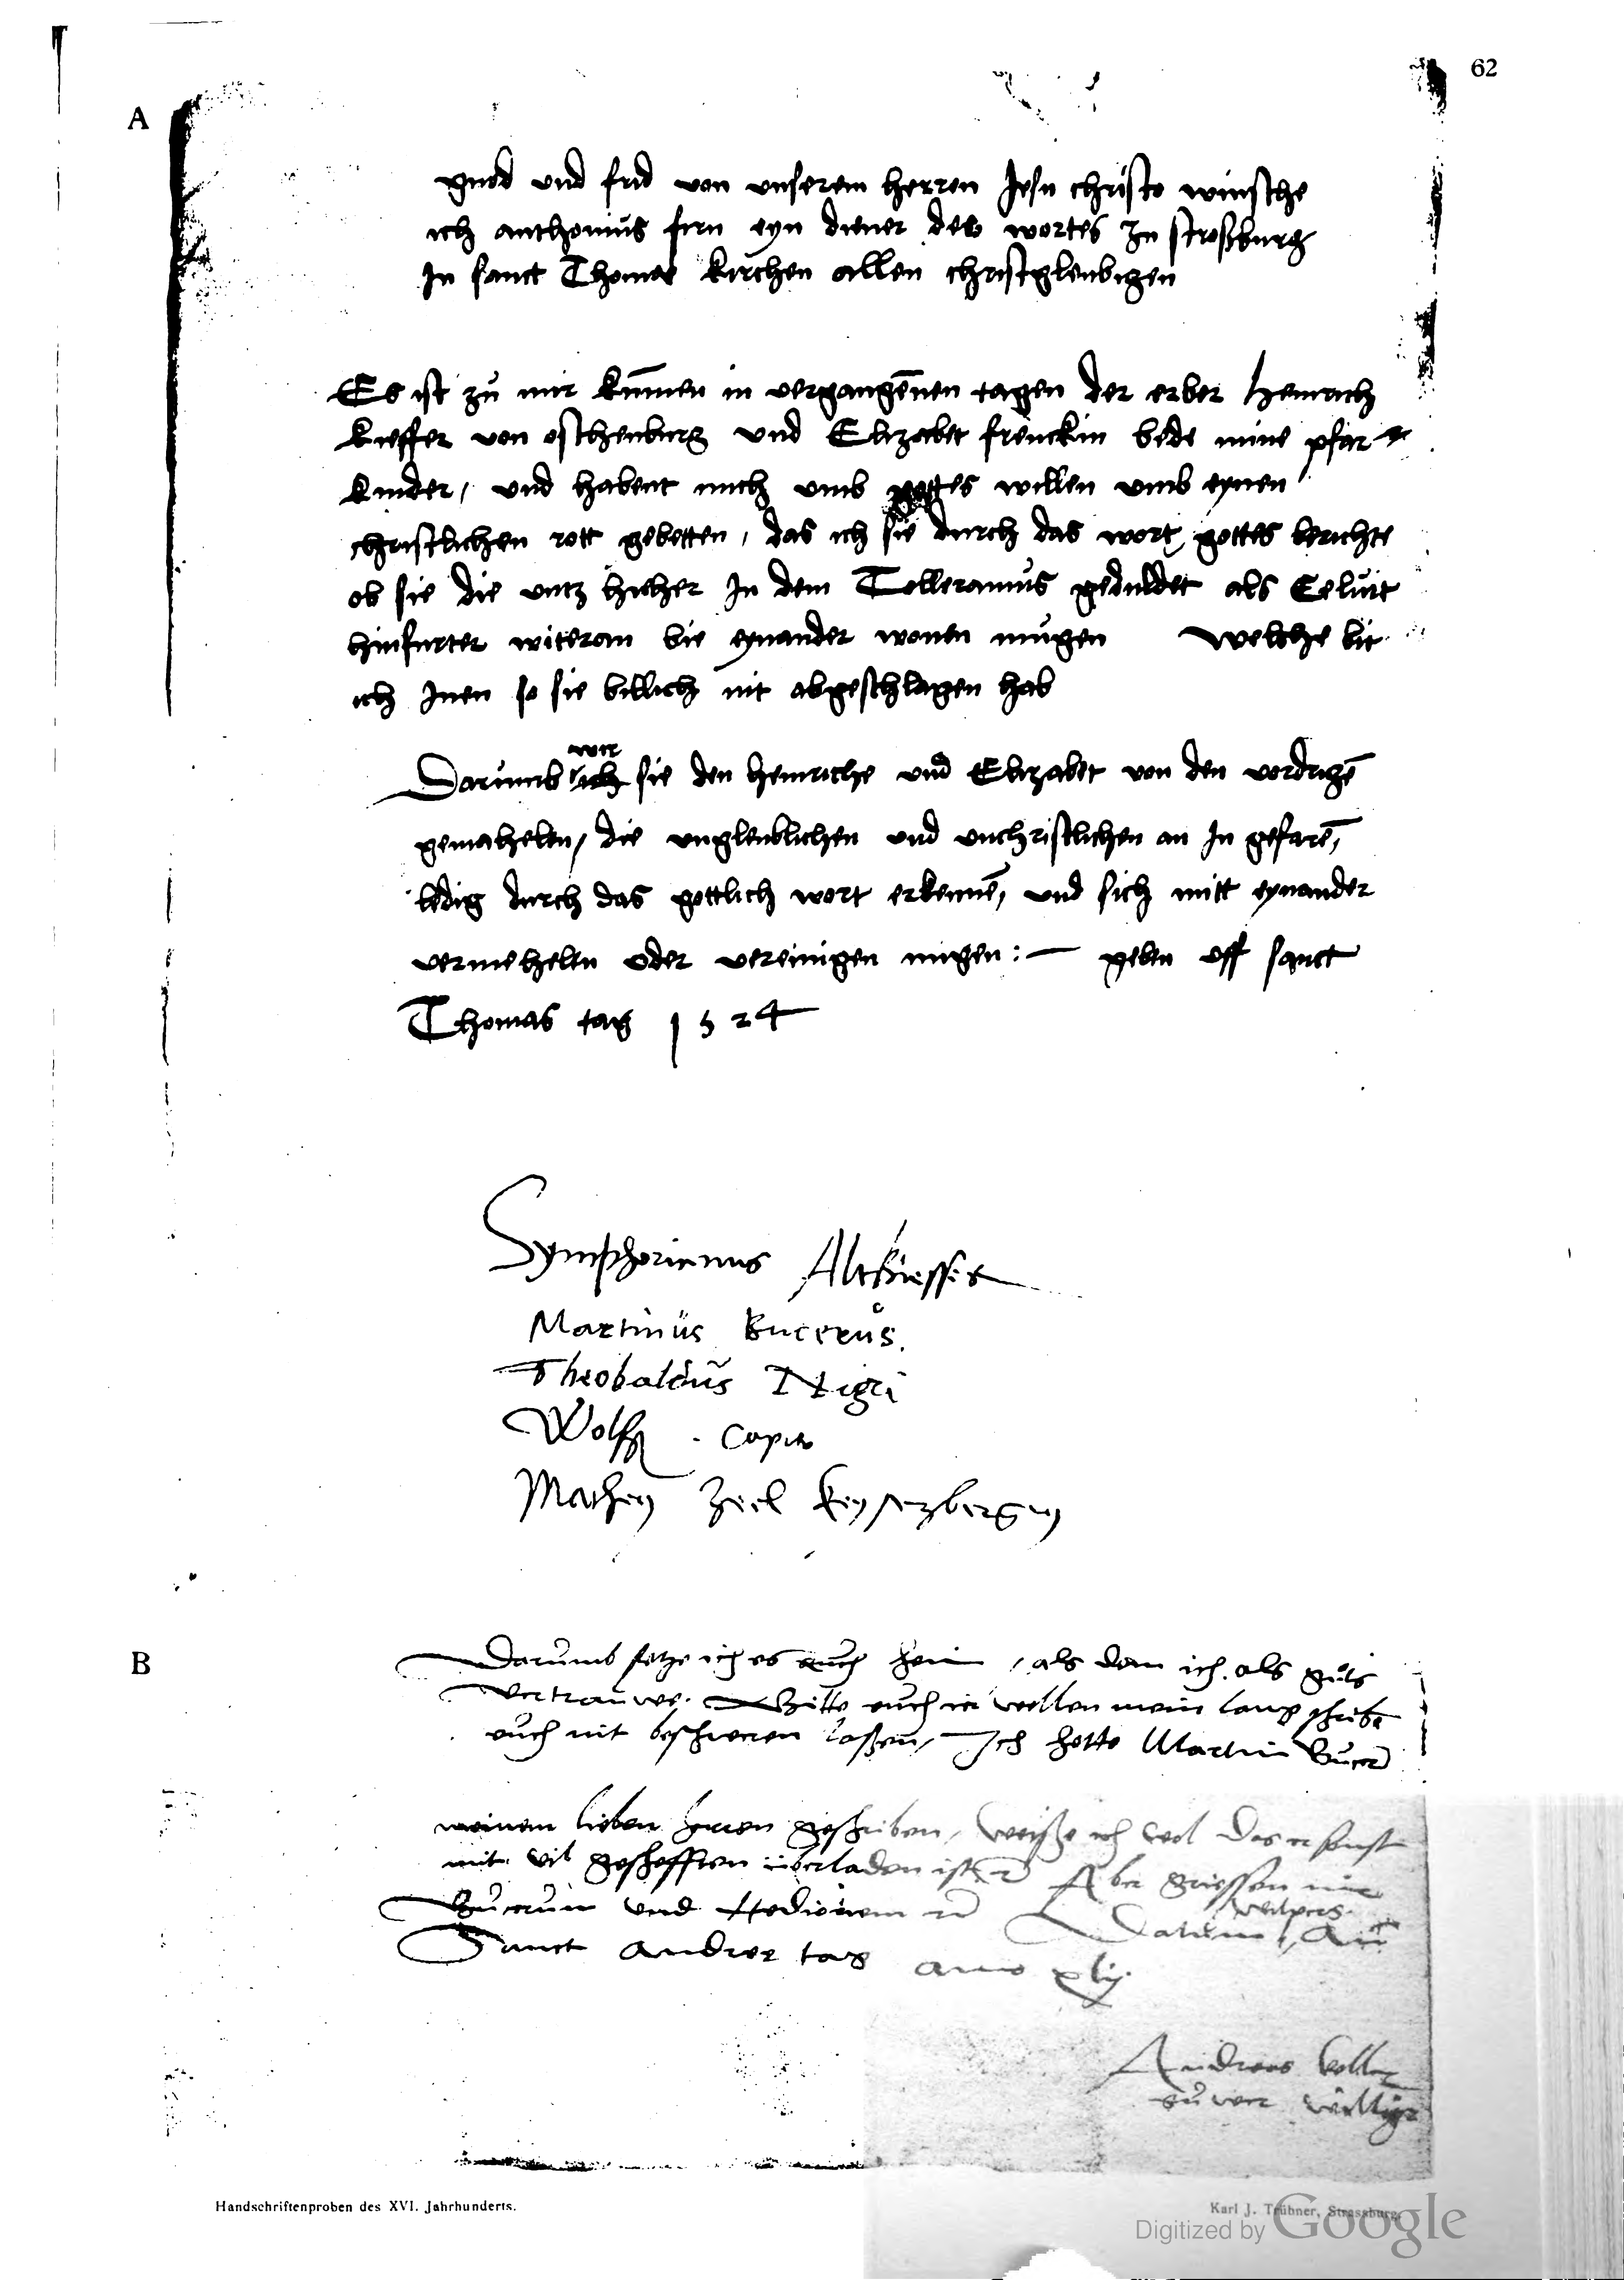 62
A
gnod und frid von unserem herren Jesu christo winsche
ich anthonius firn eyn diener des wortes zu stroßburg
In sanct Thomas kirchen allen christgleubigen
Es ist zů mir kummen in vergangenen tagen der erber Heinrich
kieffer von offenburg und Elizabet frenckin bede mine pfar
kinder, und habent mich umb gottes willen umb eynen
christlichen rott gebetten, das ich sie durch das wort gottes berichte
ob sie die untz hieher In dem Tolleramus geduldet als Eelüt
hinfurter witeran bie eynander wonen mügen welche bit
ich Inen so sie billich nit abgeschlagen hab
wir
Darumb ich sie den heinriche und Elizabet von den vordrigē
gemahelen, die ungleublichen und unchristlichen an In gefarē,
ledig durch das gottlich wort erkennē, und sich mitt eynander
vermehelen oder vereinigen mugen :— geben uff sanct
Thomas tag 1524
Symphorianus Altbiesser
Martinus Bucerus.
Theobaldus Nigri
Wolfg. Capito
Matheus Zeel Keysersbergeṅ
B
Darumb setze ich es euch heim, als dem ich als gůts
vertrauwe. Bitte euch ir wellen mein lang schribē
euch nit beschweren laßen, Ich hette Martin Bucer
meinem lieben herren geschriben, weiß ich wol das er sonst
mit vil gescheften überladen ist Aber griessen mir
Bucerum und Hedionem Datum, An
Sanct Andree tag anno xlij.
Andreas keller
euwer williger
Handschriftenproben des XVI. Jahrhunderts.
Karl J. Trübner, Strassburg.
Digitized by Google